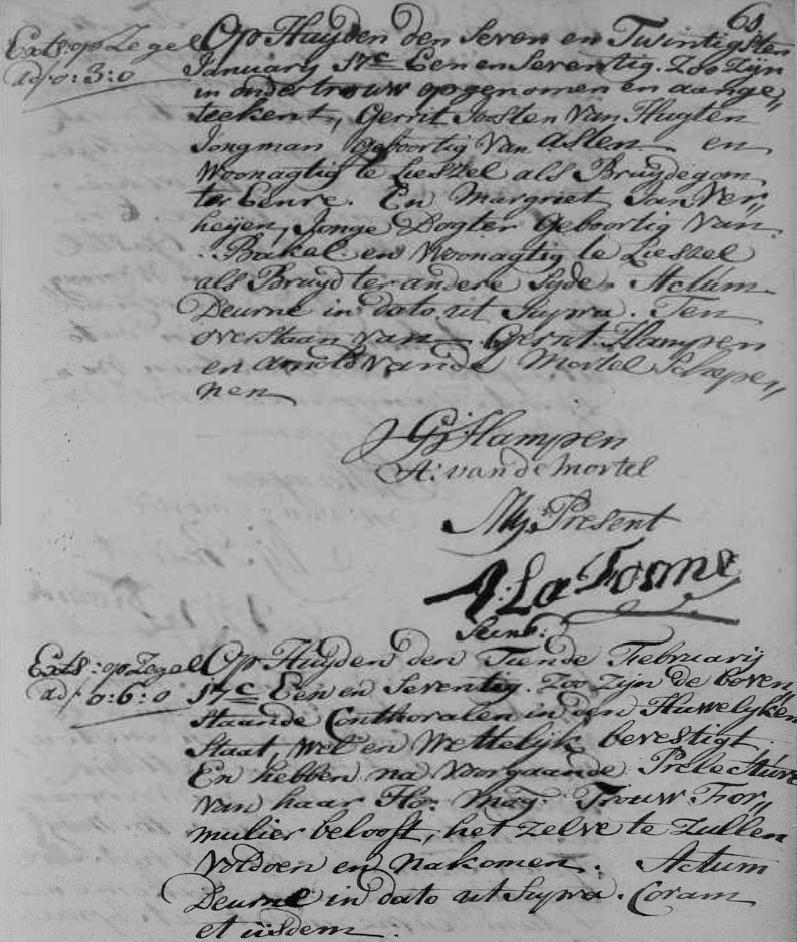 61
Exts: op Zegel
ad ƒ 0:3:0
Op Huijden den Seven en Twintigsten
January 17c Een en Seventig. Zoo Zijn
in ondertrouw opgenomen en aange„
teekent, Gerrit Joosten Van Hugten
Jongman geboortig Van Asten en
Woonagtig te Liessel als Bruydegom
ter Eenre. En Margriet Jan Ver„
heijen, Jonge Dogter Geboortig Van
Bakel en Woonagtig te Liessel
als Bruyd ter andere Syde. Actum
Deurne in dato ut Supra. Ten
overstaan van Gerrit Hampen
en Arnold Vande Mortel Schepe„
nen
G: Hampen
A: van de mortel
Mij Present
A: La Forme
Secrs:
Exts: op Zegel
ad ƒ 0:6:0
Op Huijden den Tiende Februarij
17c Een en Seventig. Zoo Zijn de boven„
staande Conthoralen in den Huwelijken
Staat, Wel en Wettelijk bevestigt
En hebben na Voorgaande Prelecture
Van haar Ho: Mog: Trouw For„
mulier belooft, het zelve te Zullen
Voldoen en nakomen. Actum
Deurne in dato ut Supra. Coram
et iisdem.